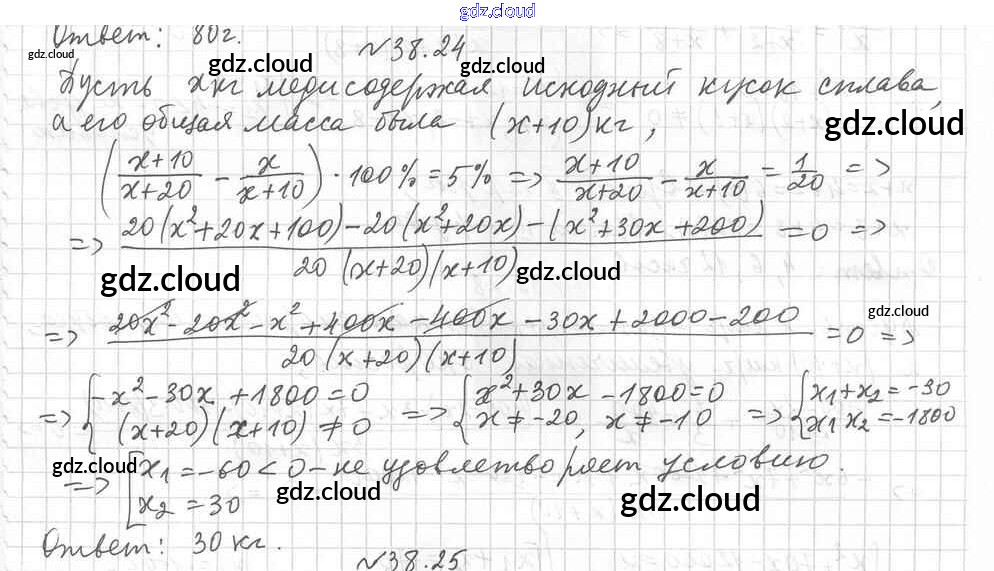 gdz.cloud
Ответ: 80г.
gdz.cloud
№38.24
gdz.cloud gdz.cloud
Пусть x кг меди содержал исходный кусок сплава,
а его общая масса была (x+10) кг,
gdz.cloud
((x+10)/(x+20) - x/(x+10)) · 100% = 5% => (x+10)/(x+20) - x/(x+10) = 1/20 =>
=> (20(x²+20x+100)-20(x²+20x)-(x²+30x+200))/(20(x+20)(x+10)) = 0 =>
gdz.cloud gdz.cloud
=> (20x²-20x²-x²+400x-400x-30x+2000-200)/(20(x+20)(x+10)) = 0 =>
gdz.cloud
=> { -x²-30x+1800=0 => { x²+30x-1800=0 => { x₁+x₂=-30
(x+20)(x+10)≠0 x≠-20, x≠-10 x₁x₂=-1800
gdz.cloud
=> [ x₁=-60<0 - не удовлетворяет условию.
x₂=30
gdz.cloud gdz.cloud
Ответ: 30 кг.
№38.25